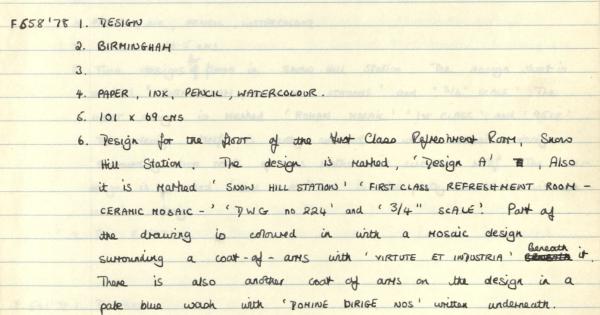 F658'78 1. DESIGN
2. BIRMINGHAM
3.
4. PAPER, INK, PENCIL, WATERCOLOUR.
5. 101 x 69 cms
6. Design for the floor of the First Class Refreshment Room, Snow
Hill Station. The design is marked, 'Design A', Also
it is marked 'SNOW HILL STATION' 'FIRST CLASS REFRESHMENT ROOM -
CERAMIC MOSAIC -' 'DWG no 224' and '3/4" SCALE'. Part of
the drawing is coloured in with a mosaic design
surrounding a coat-of-arms with 'VIRTUTE ET INDUSTRIA' Beneath it.
There is also another coat of arms on the design in a
pale blue wash with 'DOMINE DIRIGE NOS' written underneath.